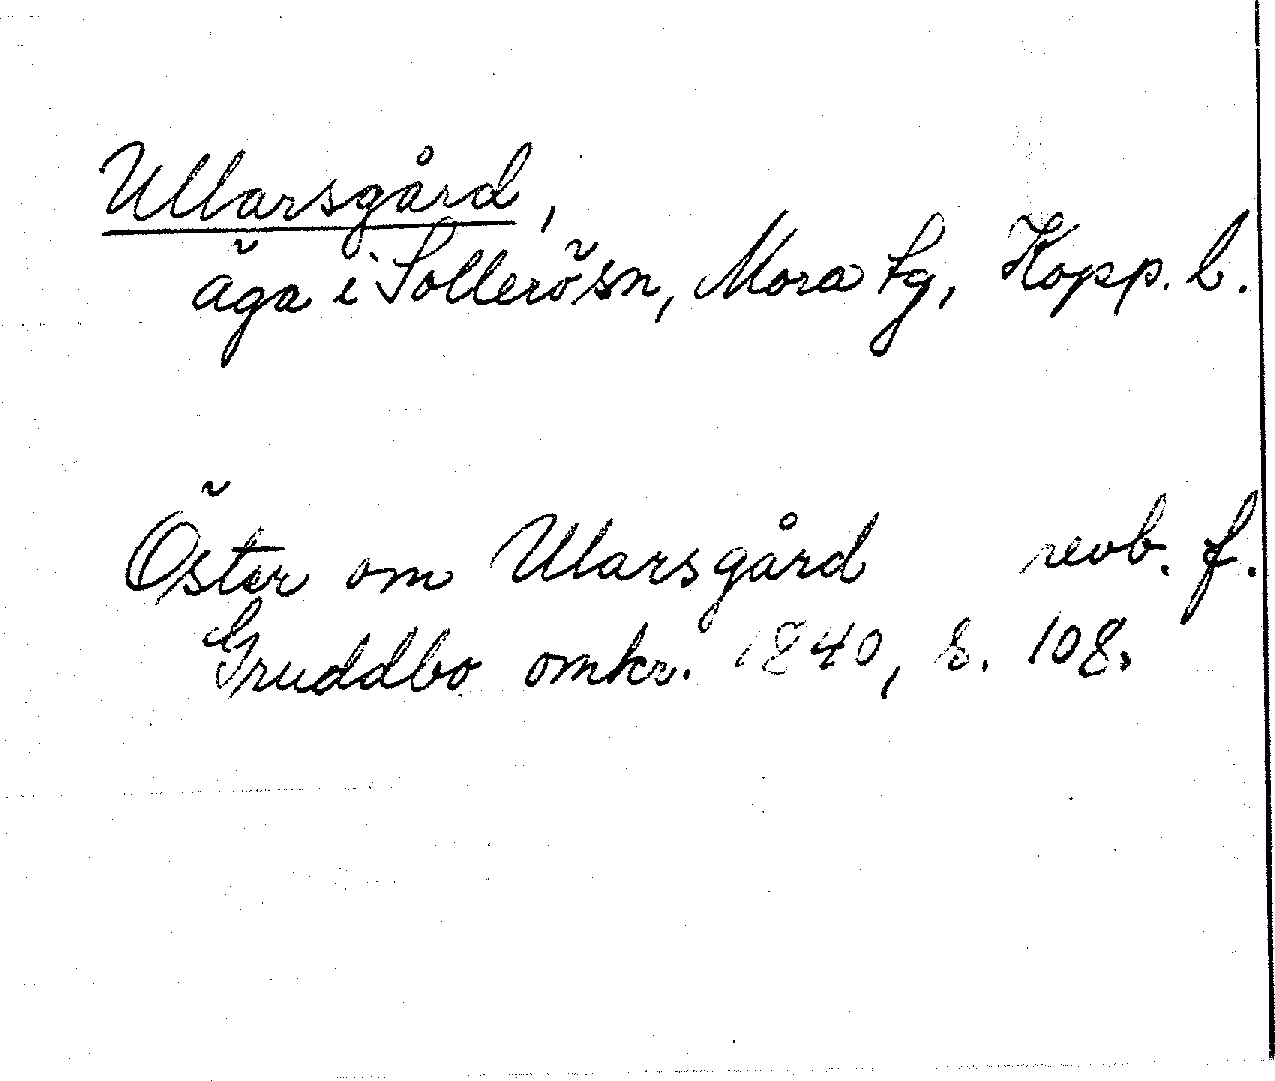 Ullarsgård,
äga i Sollerösn, Mora tg, Kopp. l.
Öster om Ularsgård revb. f.
Gruddbo omkr. 1840, s. 108.